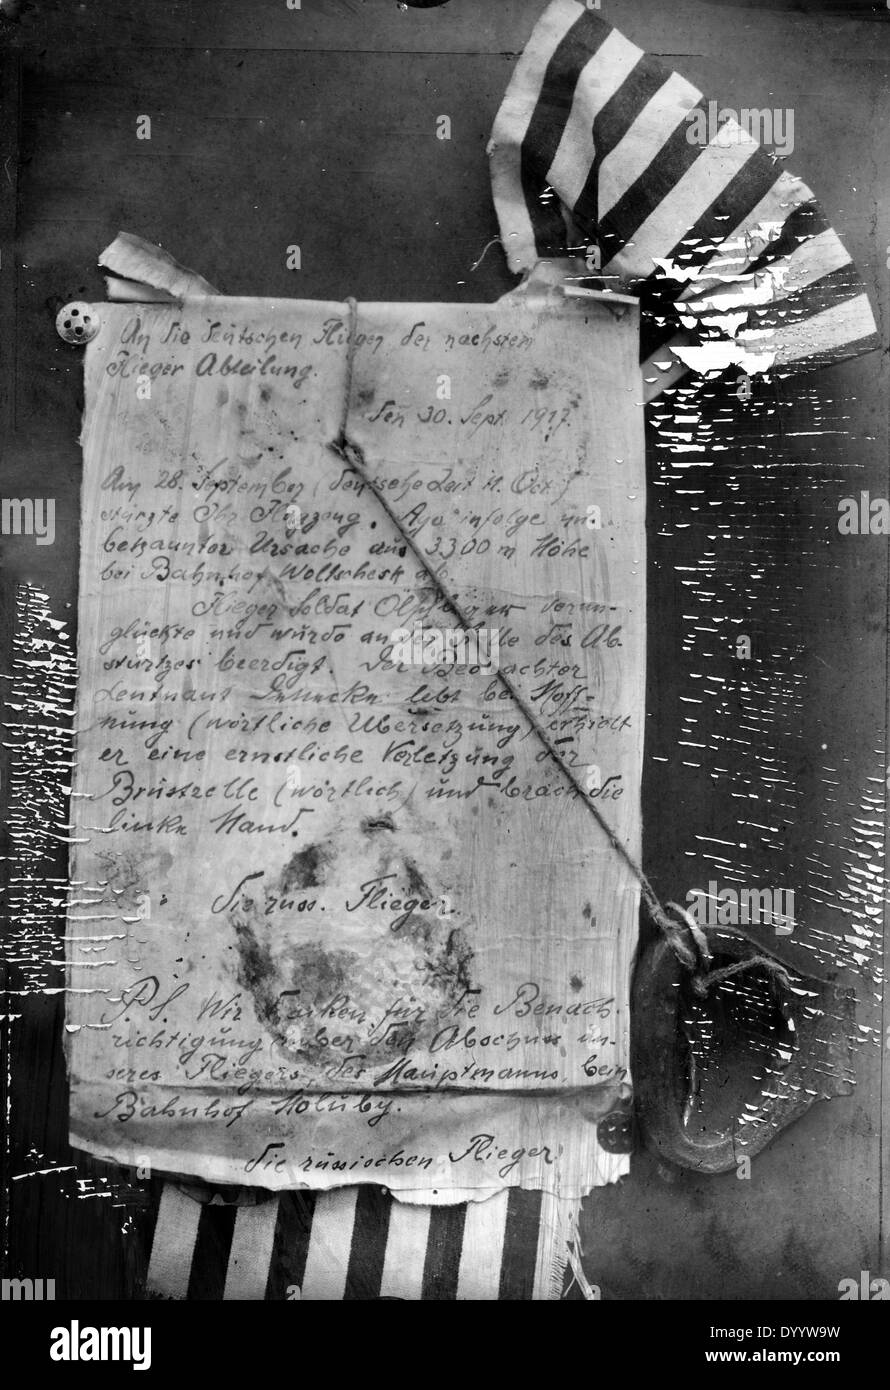 An die deutschen Flieger der nächsten
Flieger Abteilung.
den 30. Sept. 1917.
Am 28. September (deutsche Zeit 11. Oct.)
stürzte Ihr Flugzeug "Ago" infolge un-
bekannter Ursache aus 3300 m Höhe
bei Bahnhof Woltschesk ab.
Flieger Soldat verun-
glückte und wurde an der Stelle des Ab-
sturtzes beerdigt. Der Beobachter
Leutnant lebt bei Hoff-
nung (wörtliche Übersetzung) erhielt
er eine ernstliche Verletzung der
Brustzelle (wörtlich) und brach die
linke Hand.
die russ. Flieger.
P.S. Wir danken für die Benach-
richtigung über den Abschuss un-
seres Fliegers, des Hauptmanns, beim
Bahnhof Holuby.
die russischen Flieger
alamy
a
Image ID: DYYW9W
www.alamy.com